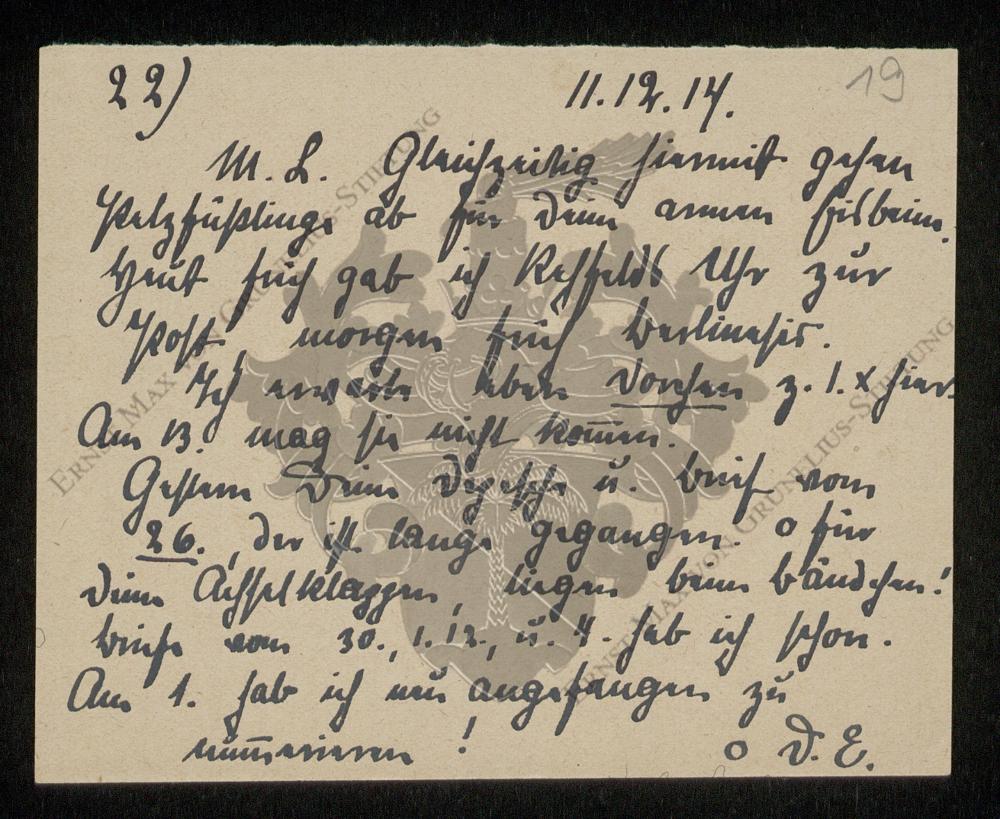 22) 11.12.14. 19
M. L. Gleichzeitig hiermit gehen
Pelzfüßlinge ab für Deine armen Eisbeine.
Heut früh gab ich Rehfelds Uhr zur
Post, morgen früh
Ich erwarte eben Dorchen z. 1. x hier.
Am 13. mag sie nicht kommen.
Gestern Deine Depesche u. Brief vom
26., der ist lange gegangen. o für
Deine Achselklappen, liegen beim Bändchen!
Briefe vom 30., 1.12., u. 4. hab ich schon.
Am 1. hab ich neu angefangen zu
nummerieren! o D. E.
ERNST MAX VON GRUNELIUS-STIFTUNG
ERNST MAX VON GRUNELIUS-STIFTUNG